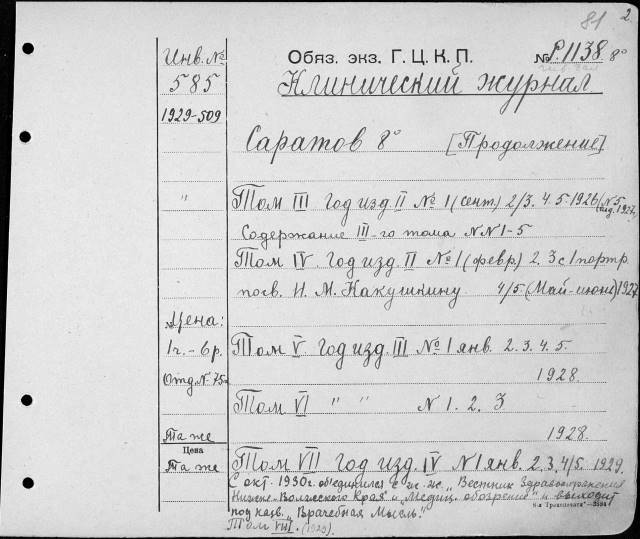 81 2.
Инв. №
585
1929-509
Обяз. экз. Г.Ц.К.П. № Р.1138 8°
Клинический журнал
Саратов 8° [Продолжение]
" Том III год изд. II № 1 (сент.) 2/3. 4. 5. 1926 (№5
изд. 1927)
Содержание III-го тома NN 1-5
Том IV. год изд. II № 1 (февр.) 2. 3 с 1 портр.
посв. Н. М. Какушкину 4/5. (Май-июнь) 1927
Цена:
1 г. - 6 р. Том V. год изд. III № 1 янв. 2. 3. 4. 5.
Отд. № 75к 1928.
Том VI " " N 1. 2. 3
Та же 1928.
Цена
Та же Том VII год изд. IV N 1 янв. 2. 3. 4/5. 1929.
С окт. 1930г. объединился с
"Вестник Здравоохранения
Нижне-Волжского Края" и "Медиц. обозрение" и выходит
под назв. "Врачебная Мысль."
Том VIII. (1929).